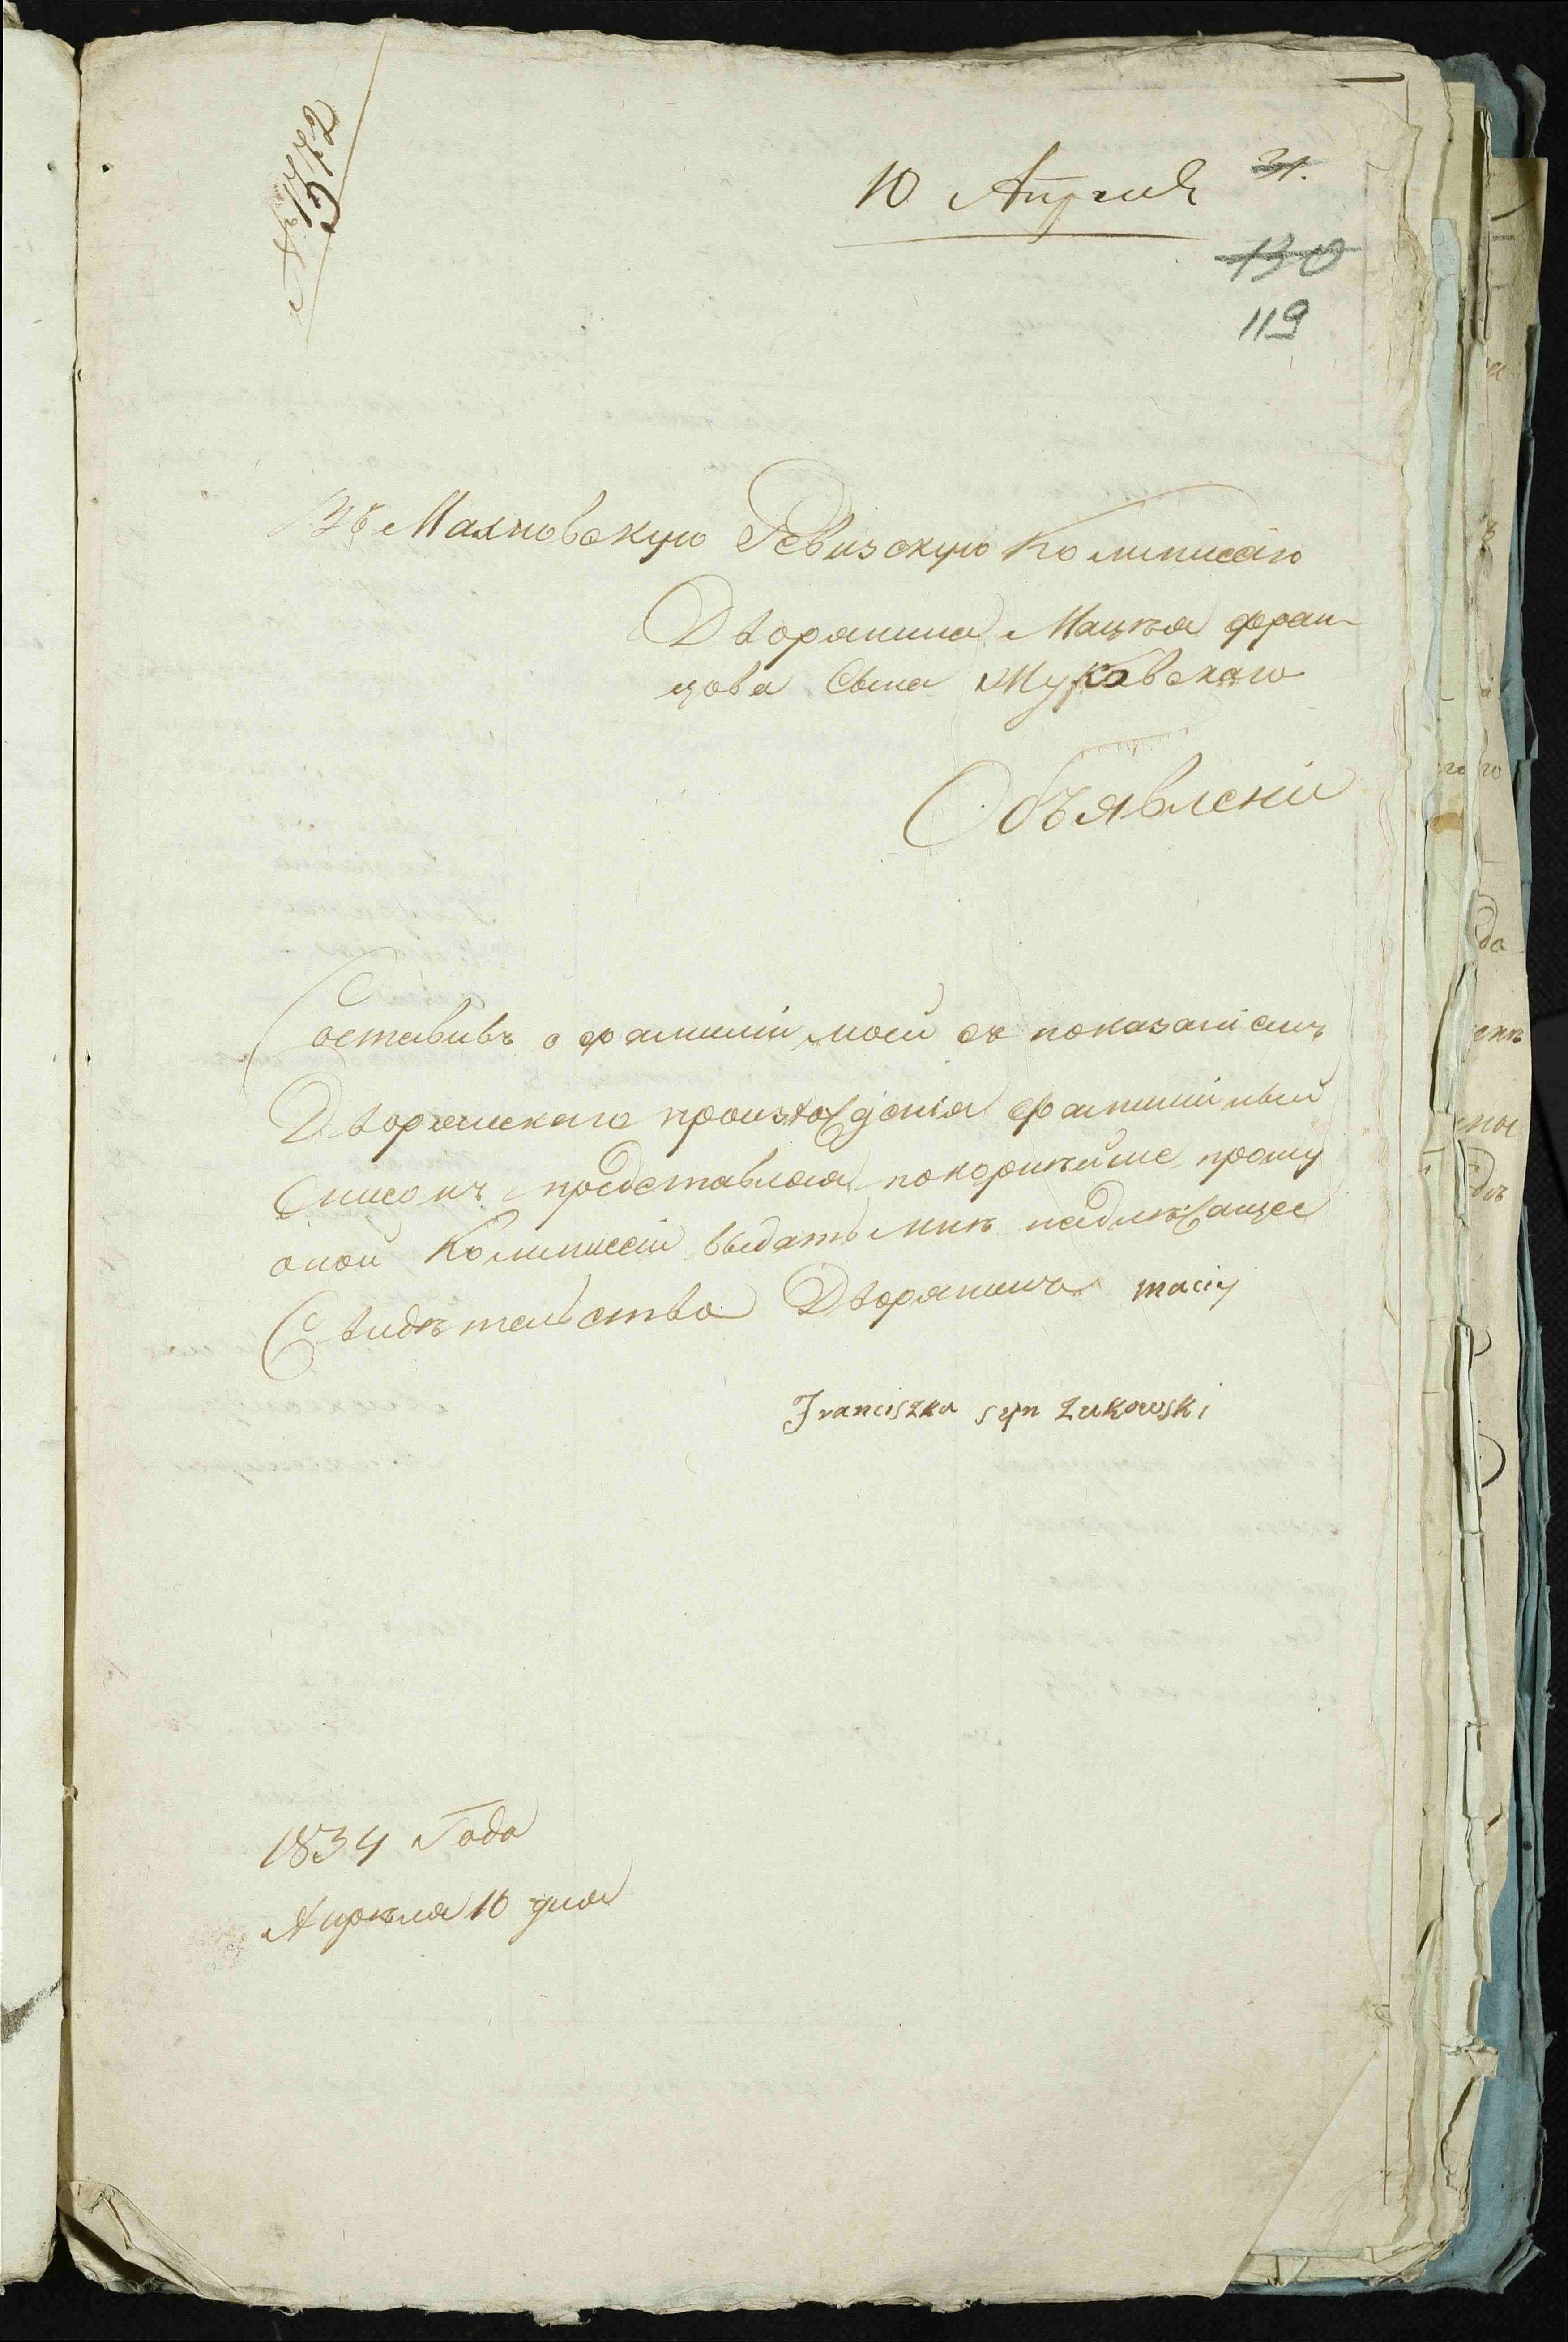 № 1772
10 Апреля
31.
130
119
Въ Махновскую Ревизскую Коммиссію
Дворянина Мацѣя Фран-
цова Сына Жуковскаго
Объявленіе
Составивъ о фамиліи моей съ показаніемъ
Дворянскаго произхожденія фамилійный
Списокъ представляя покорнѣйше прошу
оной Коммиссіи выдать мнѣ надлежащее
Свидѣтельство Дворянинъ maciy
Franciszka syn Żukowski
1834 Года
Апрѣля 10 дня